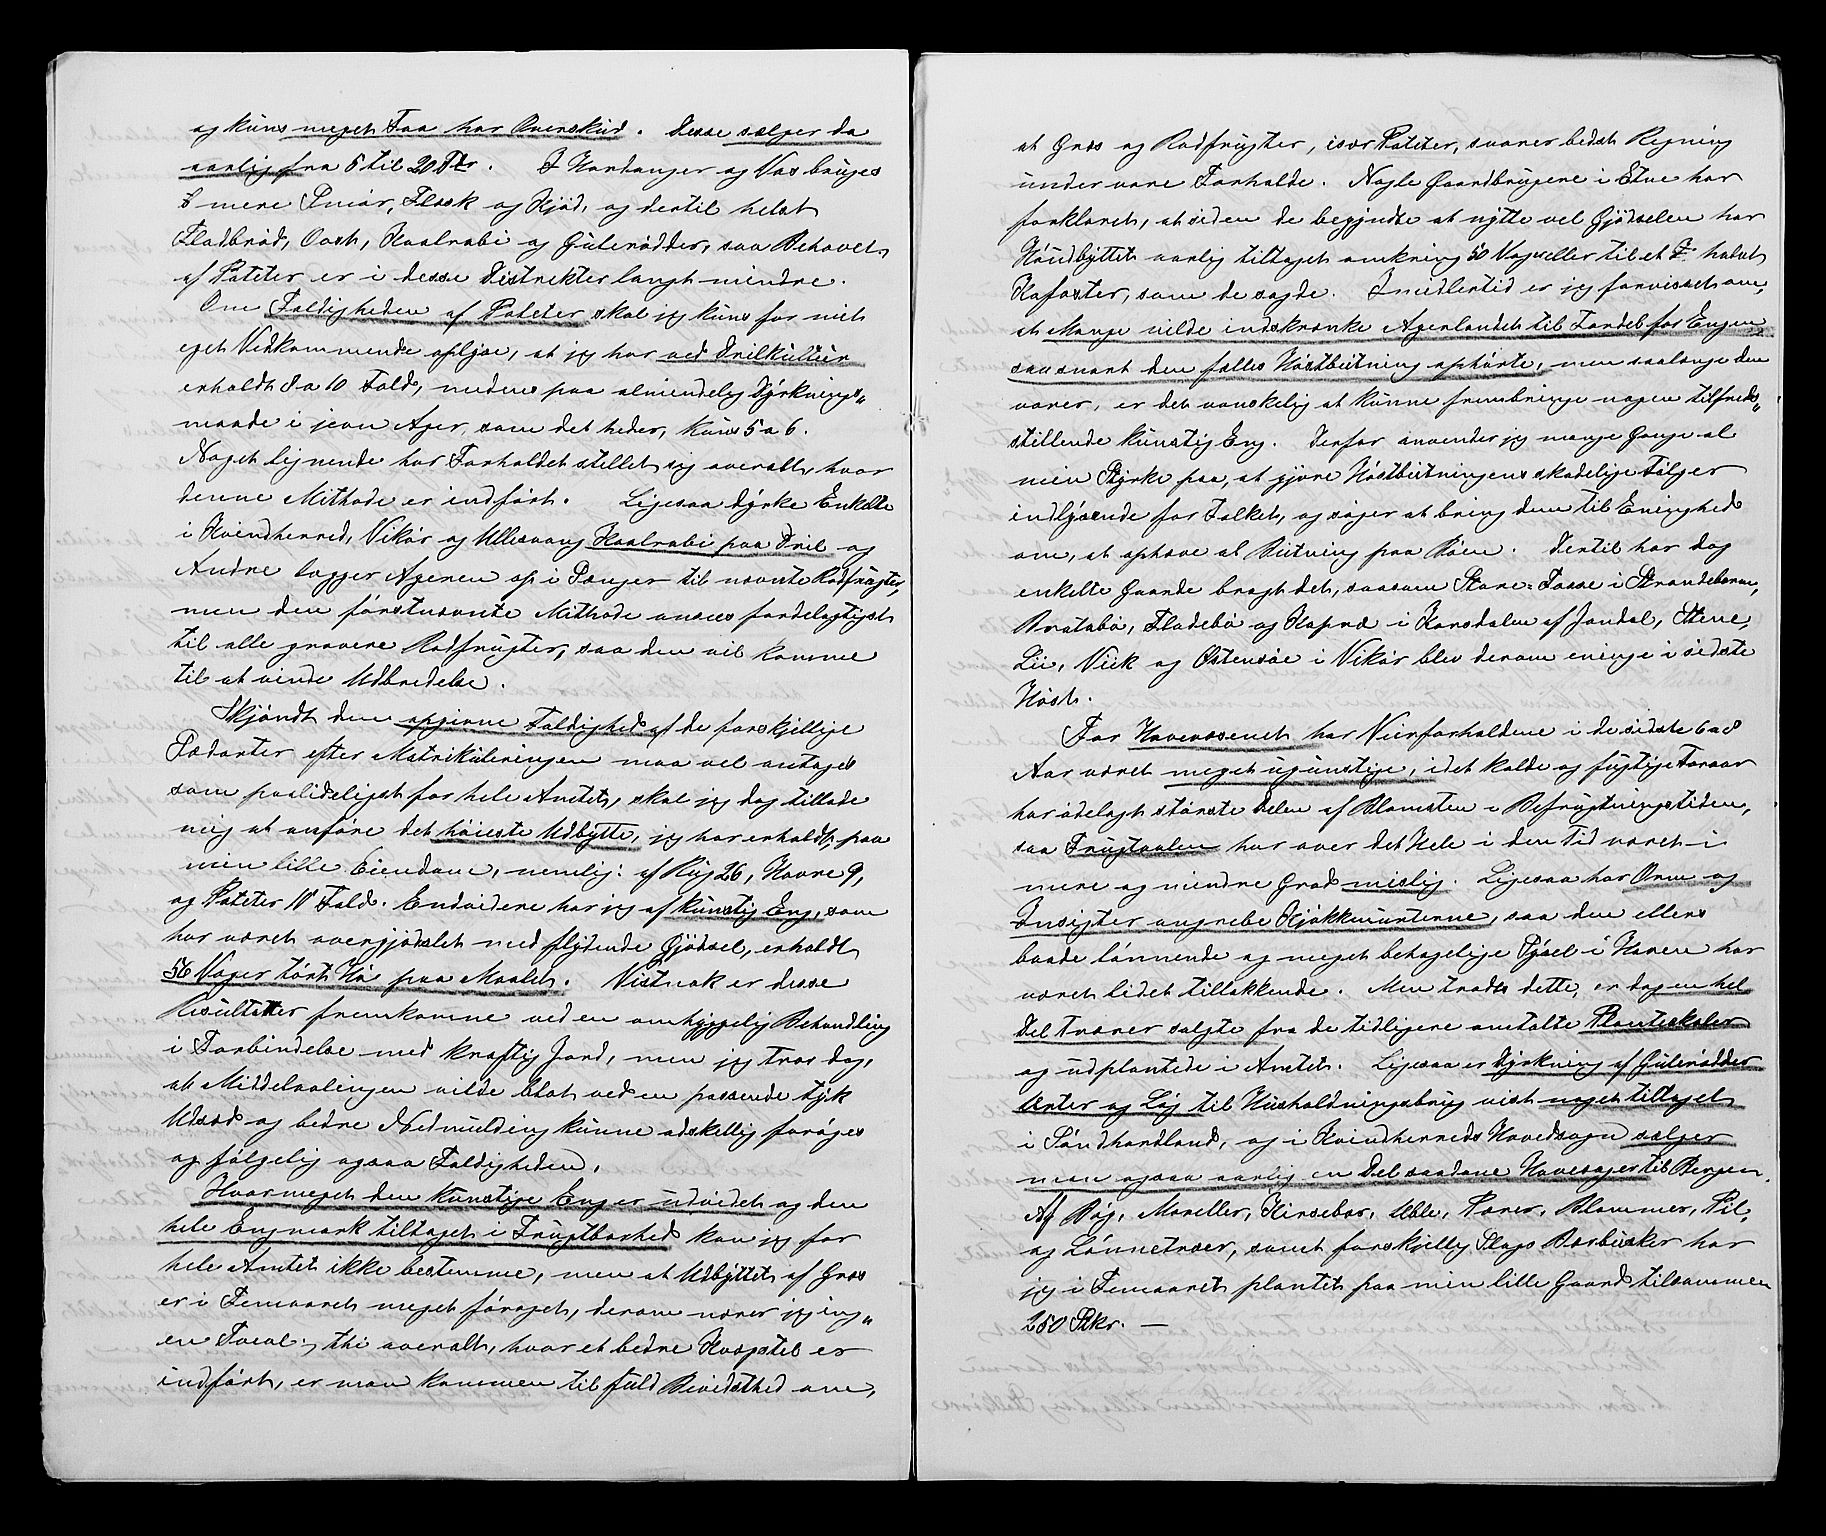 og kuns meget Faa har Overskud. Desse sælger da
aarlig fra 5 til 20 Tdr. I Hardanger og Vos bruges
mere Smör, Flæsk og Kjöd, og dertil helst
Fladbröd, Oost, Kaalrabi og Gulerödder, saa Behovet
af Poteter er i desse Distrikter langt mindre.
Om Foldigheden af Poteter skal jeg kuns for mit
eget Vedkommende oplyse, at jeg har ved Drilkultur
erholdt 8 a 10 Fold, medens paa almindelig Dyrknings„
maade i jevn Ager, som det heder, kuns 5 a 6.
Noget lignende har Forholdet stillet sig overalt, hvor
denne Mithode er indfört. Ligesaa dyrke Enkelte
i Kvindherred, Vikör og Ullesvang Kaalrabi paa Dril og
Andre lægger Ageren op i Senger til nævnte Rodfrugter,
men den förstnævnte Mithode ansees fordelagtigst
til alle grovere Rodfrugter, saa den vil komme
til at vinde Udbredelse.
Skjöndt den opgivne Foldighed af de forskjellige
Sædarter efter Matrikuleringen maa vel antages
som paalideligst for hele Amtet, skal jeg dog tillade
mig at anföre det höieste Udbytte, jeg har erholdt paa
min lille Eiendom, nemlig: af Rug 26, Havre 9,
og Poteter 10 Fold. Endvidere har jeg af kunstig Eng, som
har været overgjödslet med flydende Gjödsel, erholdt
56 Voger tört Hö paa Maalet. Vistnok er desse
Resultatter fremkomne ved en omhyggelig Behandling
i Forbindelse med kraftig Jord, men jeg tror dog,
at Middelavlingen vilde blot ved en passende tyk
Udsæd og bedre Nedmulding kunne adskellig foröges
og fölgelig ogsaa Foldigheden.
Hvor meget den kunstige Eng er udvidet og den
hele Engmark tiltaget i Frugtbarhed kan jeg for
hele Amtet ikke bestemme, men at Udbyttet af Græs
er i Femaaret meget foröget, derom nærer jeg ing„
en Tvivl; thi overalt, hvor et bedre Kvægstel er
indfört, er man kommen til fuld Bevidsthed om,
at Græs og Rodfrugter, især Poteter, svarer bedst Regning
under vore Forholde. Nogle Gaardbrugere i Etne har
forklaret, at siden de begyndte at nytte vel Gjödselen har
Höudbyttet aarlig tiltaget omkring 50 Voger eller til et halvt
Kofoster, som de sagde. Imidlertid er jeg forvisset om,
at Mange vilde indskrænke Agerlandet til Fordel for Engen
saasnart den fælles Höstbeitning ophörte, men saalænge den
varer, er det vanskelig at kunne frembringe nogen tilfreds„
stillende kunstig Eng. Derfor anvender jeg mange Gange al
min Styrke paa, at gjöre Höstbeitningens skadelige Fölger
indlysende for Folket, og söger at bring dem til Eninghed
om, at ophæve al Beitning paa Böen. Dertil har dog
enkelte Gaarde bragt det, saasom Store-Tosse i Strandebarm,
Bratabö, Fladebö og Kapræ i Korsdalen af Jondal, Stene,
Lii, Viik og Östensöe i Vikör blev derom eninge i sidste
Höst.
For Havevæsenet har Veirforholdene i de sidste 6 a 8
Aar været meget ugunstige, idet kolde og fugtige Foraar
har ödelagt störste Delen af Blomsten i Befrugtningstiden,
saa Frugtavlen har over det Hele i den Tid været i
mere og mindre Grad mislig. Ligesaa har Orm og
Insigter angrebe Kjökkenurterne, saa den ellers
baade lönnende og meget behagelige Sysel i Haven har
været lidet tillokkende. Men trods dette, er dog en hel
Del Træer solgte fra de tidligere omtalte Planteskoler
og udplantede i Amtet. Ligesaa er Dyrkning af Gulerödder
Erter og Lög til Husholdningsbrug vist noget tiltaget
i Söndhordland, og i Kvindherreds Hovedsogn sælger
man ogsaa aarlig en Del saadane Havesager til Bergen.
Af Bög, Moreller, Kirsebær, Eble, Pærer, Blommer, Pil,
og Lönnetræer, samt forskjellig Slags Bærbusker har
jeg i Femaaret plantet paa min lille Gaard tilsammen
250 Stkr. —